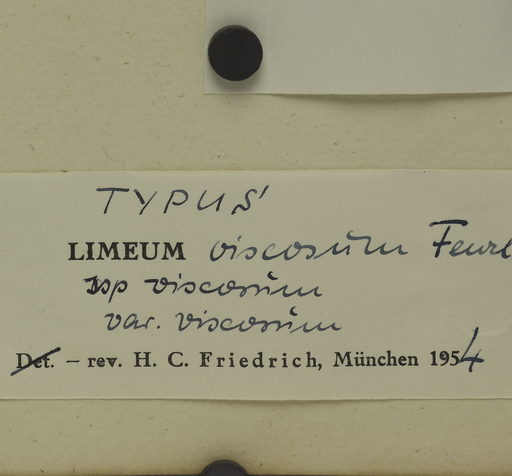 TYPUS
LIMEUM viscosum Fenzl
ssp viscosum
var. viscosum
Det. – rev. H. C. Friedrich, München 1954